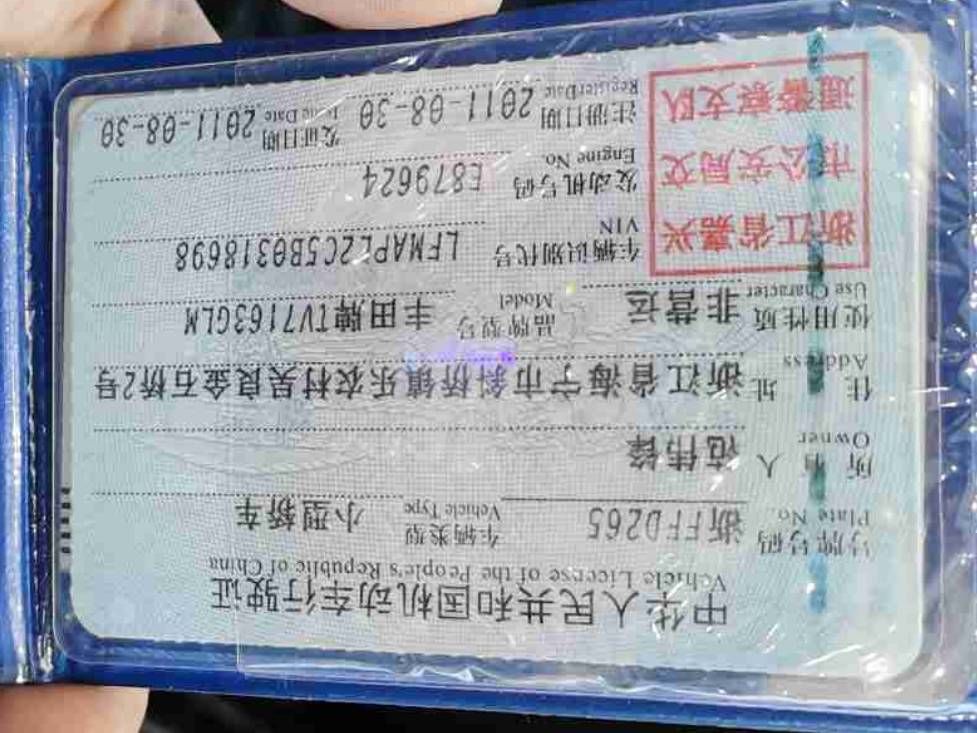 中华人民共和国机动车行驶证
Vehicle License of the People's Republic of China
号牌号码 浙FFD265 车辆类型 小型轿车
Plate No. Vehicle Type
所有人 范伟锋
Owner
住址 浙江省海宁市斜桥镇乐农村吴良金石桥2号
Address
使用性质 非营运 品牌型号 丰田牌TV7163GLM
Use Character Model
浙江省嘉兴
市公安局交
通警察支队
车辆识别代号 LFMAPE2C5B0318698
VIN
发动机号码 E879624
Engine No.
注册日期 2011-08-30 发证日期 2011-08-30
Register Date Issue Date